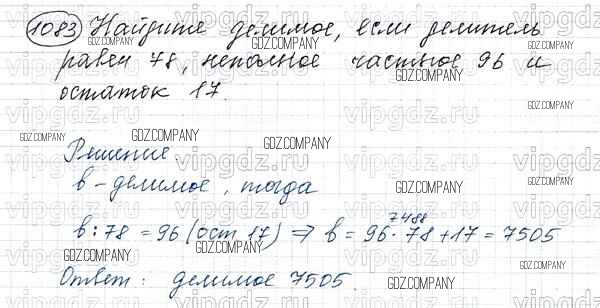 1083 Найдите делимое, если делитель
равен 78, неполное частное 96 и
остаток 17.
Решение.
в - делимое, тогда
7488
в : 78 = 96 (ост 17) ⇒ в = 96 · 78 + 17 = 7505
Ответ: делимое 7505.
GDZ.COMPANY
vipgdz.ru